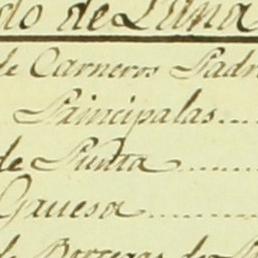 do de Luna
de Carneros Padr
Paincipalas....
de Punta ......
Gauesa ..........
de Borregas de